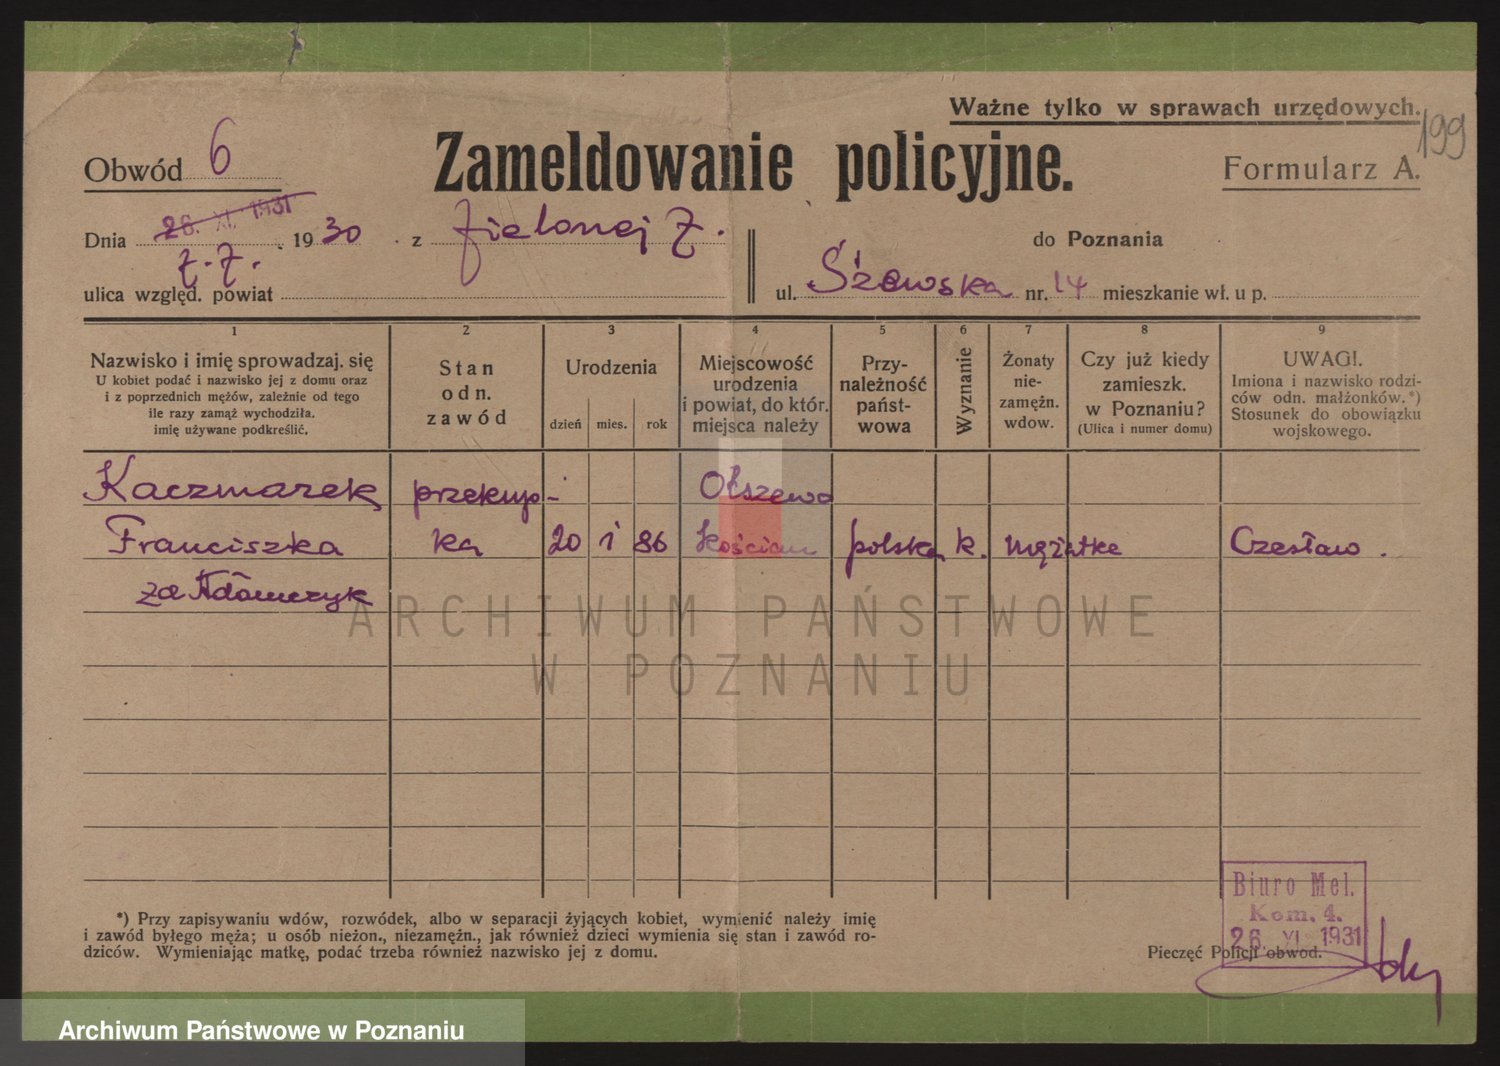 Ważne tylko w sprawach urzędowych.
199
Obwód 6
Zameldowanie policyjne.
Formularz A.
26. XI. 1931
Dnia 1930 z Zielonej 7.
do Poznania
7.7.
ulica względ. powiat
ul. nr. 14 mieszkanie wł. u p.
1 2 3 4 5 6 7 8 9
Nazwisko i imię sprowadzaj. się
U kobiet podać i nazwisko jej z domu oraz
i z poprzednich mężów, zależnie od tego
ile razy zamąż wychodziła.
imię używane podkreślić.
Stan
odn.
zawód
Urodzenia
dzień mies. rok
Miejscowość
urodzenia
i powiat, do któr.
miejsca należy
Przy-
należność
państ-
wowa
Wyznanie
Żonaty
nie-
zamężn.
wdow.
Czy już kiedy
zamieszk.
w Poznaniu?
(Ulica i numer domu)
UWAGI.
Imiona i nazwisko rodzi-
ców odn. małżonków.*)
Stosunek do obowiązku
wojskowego.
Kaczmarek przekup- Olszewo
Franciszka ka 20 1 86 Kościan polska k. mężatka Czesław.
za Adamczyk
ARCHIWUM PAŃSTWOWE
W POZNANIU
*) Przy zapisywaniu wdów, rozwódek, albo w separacji żyjących kobiet, wymienić należy imię
i zawód byłego męża; u osób nieżon., niezamężn., jak również dzieci wymienia się stan i zawód ro-
dziców. Wymieniając matkę, podać trzeba również nazwisko jej z domu.
Biuro Mel.
Kom. 4.
26. XI. 1931
Pieczęć Policji obwod.
Archiwum Państwowe w Poznaniu